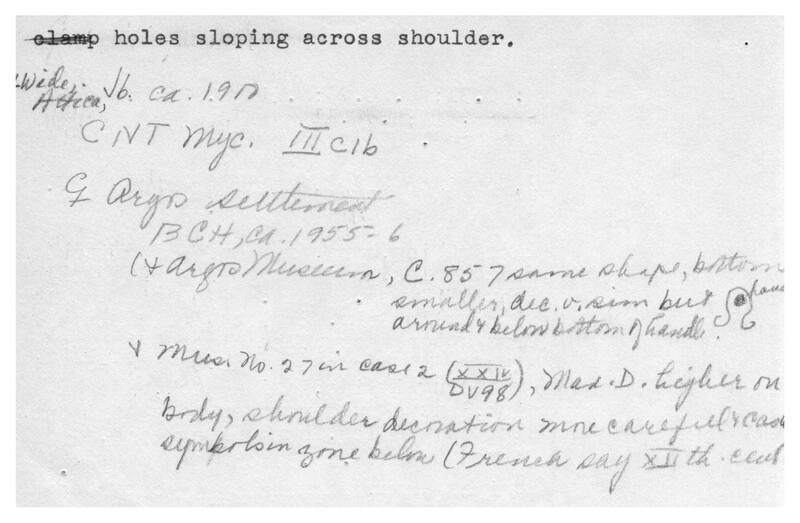 clamp holes sloping across shoulder.
Wide,
Attica, Jb. ca. 1910
CNT Myc. III C1b
Argos settlement
BCH, ca. 1955-6
(+ Argos Museum, C. 857 same shape, bottom
smaller, dec. v. sim but
around & below bottom of handle.
+ Mus. No. 27 in case 2 (XXIV
DV98), Max. D. higher on
body, shoulder decoration more careful &
symbols in zone below (French say XIIth cent